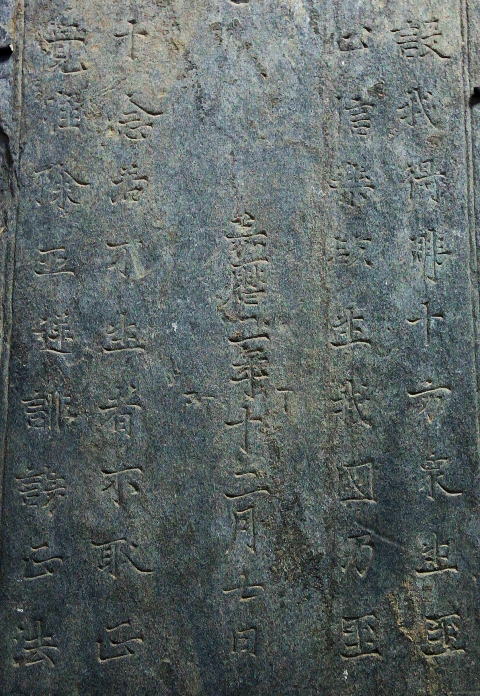 設我得佛十方衆生至
心信樂欲生我國乃至
嘉暦二年十二月七日
十念若不生者不取正
覺唯除五逆誹謗正法